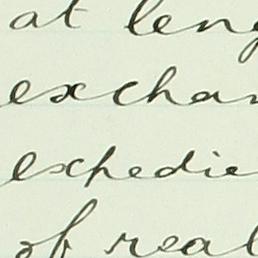 at leng
exchan
expedie
of real